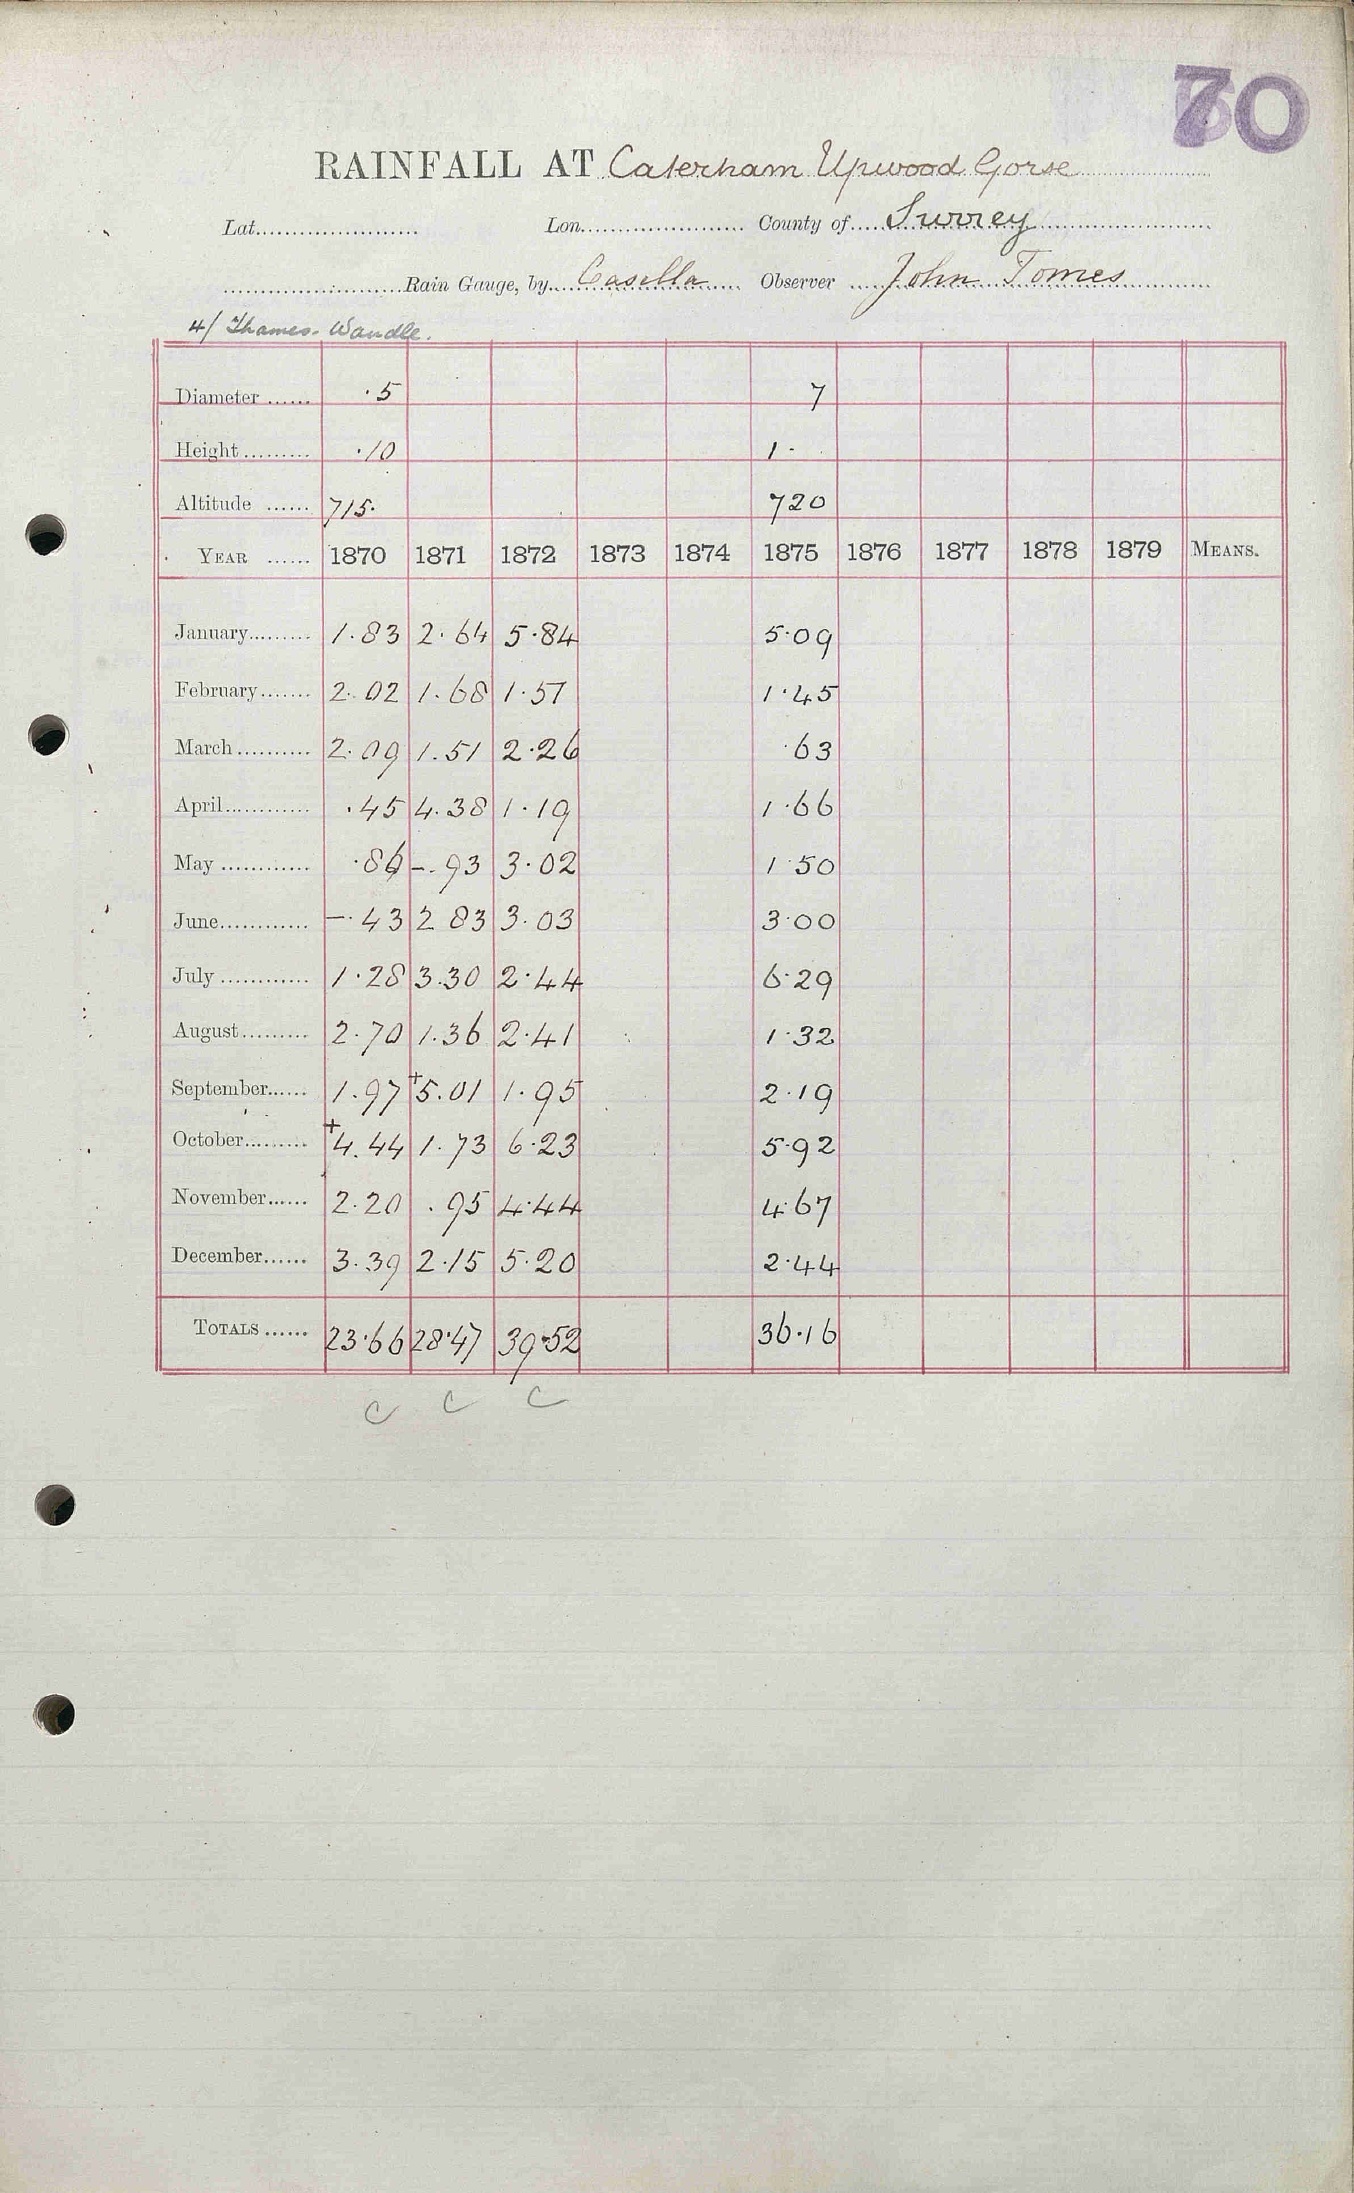 70
RAINFALL AT Caterham Upwood Gorse
Lat. Lon. County of Surrey
Rain Gauge, by Casella Observer John Tomes
4/ Thames. Wandle.
Diameter ...... ·5 7
Height ......... ·10 1·
Altitude ...... 715· 720
YEAR ...... 1870 1871 1872 1873 1874 1875 1876 1877 1878 1879 MEANS.
January......... 1·83 2·64 5·84 5·09
February....... 2·02 1·68 1·57 1·45
March.......... 2·09 1·51 2·26 ·63
April............ ·45 4·38 1·19 1·66
May ............ ·86 -·93 3·02 1·50
June............ -·43 2 83 3·03 3·00
July ............ 1·28 3·30 2·44 6·29
August......... 2·70 1·36 2·41 1·32
September...... 1·97 +5·01 1·95 2·19
October......... +4·44 1·73 6·23 5·92
November...... 2·20 ·95 4·44 4·67
December...... 3·39 2·15 5·20 2·44
TOTALS ...... 23·66 28·47 39·52 36·16
C C C